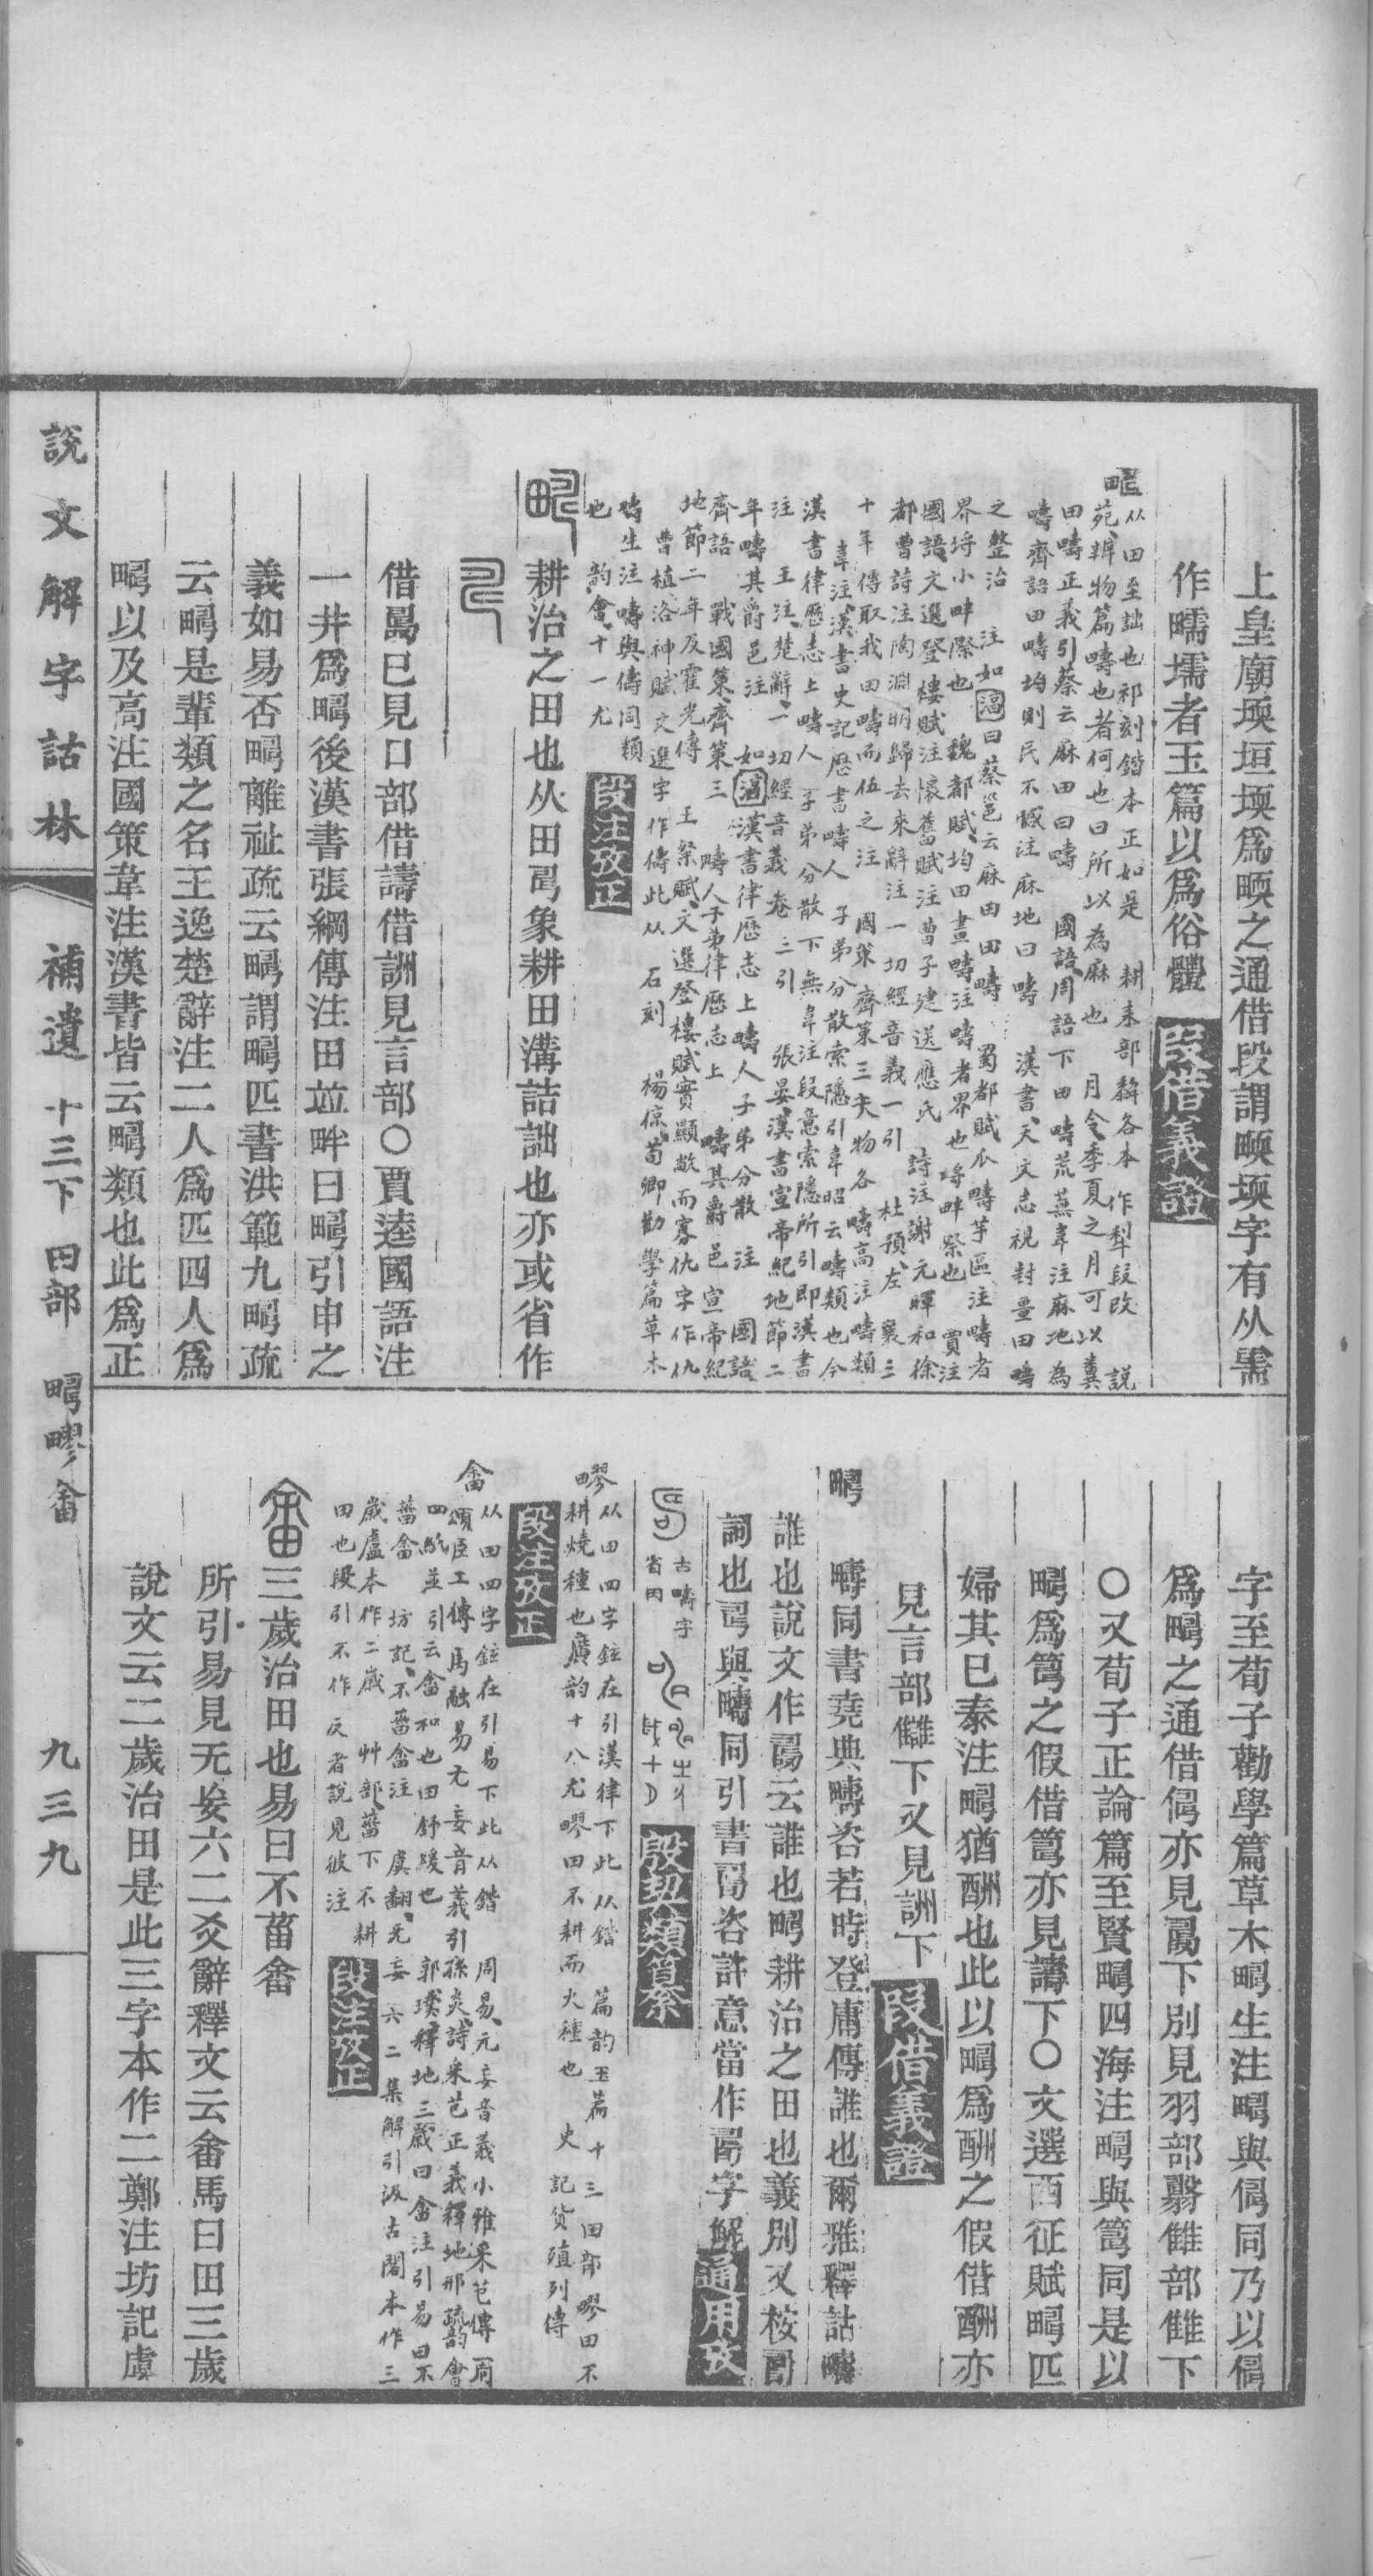 上皇廟堧垣堧爲㽭之通借段謂㽭堧字有从需
作㽭壖者玉篇以爲俗體 段借義證
从田至詘也祁刻鍇本正如是 耕耒部 各本作犁段改 說
苑辨物篇疇也者何也曰所以為麻也 月令季夏之月可以糞
田疇正義引蔡云麻田曰疇 國語周語下田疇荒蕪韋注麻地為
疇齊語田疇均則民不憾注麻地曰疇 漢書天文志視封畺田疇
之整治 注如淳曰蔡邕云麻田曰疇 蜀都賦瓜疇芋區注疇者
界埒小畔際也 魏都賦均田畫疇注疇者界也埒畔際也 賈注
國語文選登樓賦注懷舊賦注曹子建送應氏詩注謝元暉和徐
都曹詩注陶淵明歸去來辭注一切經音義一引 杜預左襄三
十年傳取我田疇而伍之注 國策齊策三夫物各疇高注疇類
韋注漢書史記歷書疇人子弟分散索隱引韋昭云疇類也今
漢書律歷志上疇人子弟分散下無韋注段意索隱所引即漢書
注 王注楚辭一切經音義卷三引 張晏漢書宣帝紀地節二
年疇其爵邑注 如淳漢書律歷志上疇人子弟分散注 國語
齊語 戰國策齊策三 疇人子弟律歷志上 疇其爵邑宣帝紀
地節二年及霍光傳 王粲賦文選登樓賦實顯敞而寡仇字作仇
曹植洛神賦文選字作儔此从石刻 楊倞荀卿勸學篇草木
疇生注疇與儔同類
也 韵會十一尤 段注攷正
耕治之田也从田𠃬象耕田溝詰詘也亦或省作
借𠷎已見口部借譸借詶見言部○賈逵國語注
一井爲疇後漢書張綱傳注田並畔曰疇引申之
義如易否疇離祉疏云疇謂疇匹書洪範九疇疏
云疇是輩類之名王逸楚辭注二人爲匹四人爲
疇以及高注國策韋注漢書皆云疇類也此爲正
字至荀子勸學篇草木疇生注疇與儔同乃以儔
爲疇之通借儔亦見𠷎下別見羽部翳雔部雔下
○又荀子正論篇至賢疇四海注疇與籌同是以
疇爲籌之假借籌亦見譸下○文選西征賦疇匹
婦其已泰注疇猶酬也此以疇爲酬之假借酬亦
見言部讎下又見詶下 段借義證
疇同書堯典疇咨若時登庸傳誰也爾雅釋詁疇
誰也說文作𠷎云誰也疇耕治之田也義別又𢏚
詞也𠃬與疇同引書𢏚咨許意當作𠷎字解 通用攷
古疇字
省田
殷契類纂
从田四字鉉在引漢律下此从鍇 篇韵玉篇十三田部疁田不
耕燒種也廣韵十八尤疁田不耕而火種也 史記貨殖列傳
段注攷正
从田四字鉉在引易下此从鍇 周易无妄音義小雅采芑傳周
頌臣工傳馬融易无妄音義引孫炎詩采芑正義釋地邢疏韵會
四紙並引云畬和也田舒緩也 郭璞釋地三歲曰畬注引易曰不
菑畬 坊記不菑畬注 虞翻无妄六二集解引汲古閣本作三
歲盧本作二歲 艸部菑下不耕
田也段引不作反者說見彼注 段注攷正
三歲治田也易曰不菑畬
所引易見无妄六二爻辭釋文云畬馬曰田三歲
說文云二歲治田是此三字本作二鄭注坊記虞
說文解字詁林 補遺 十三下 田部 疇疁畬 九三九